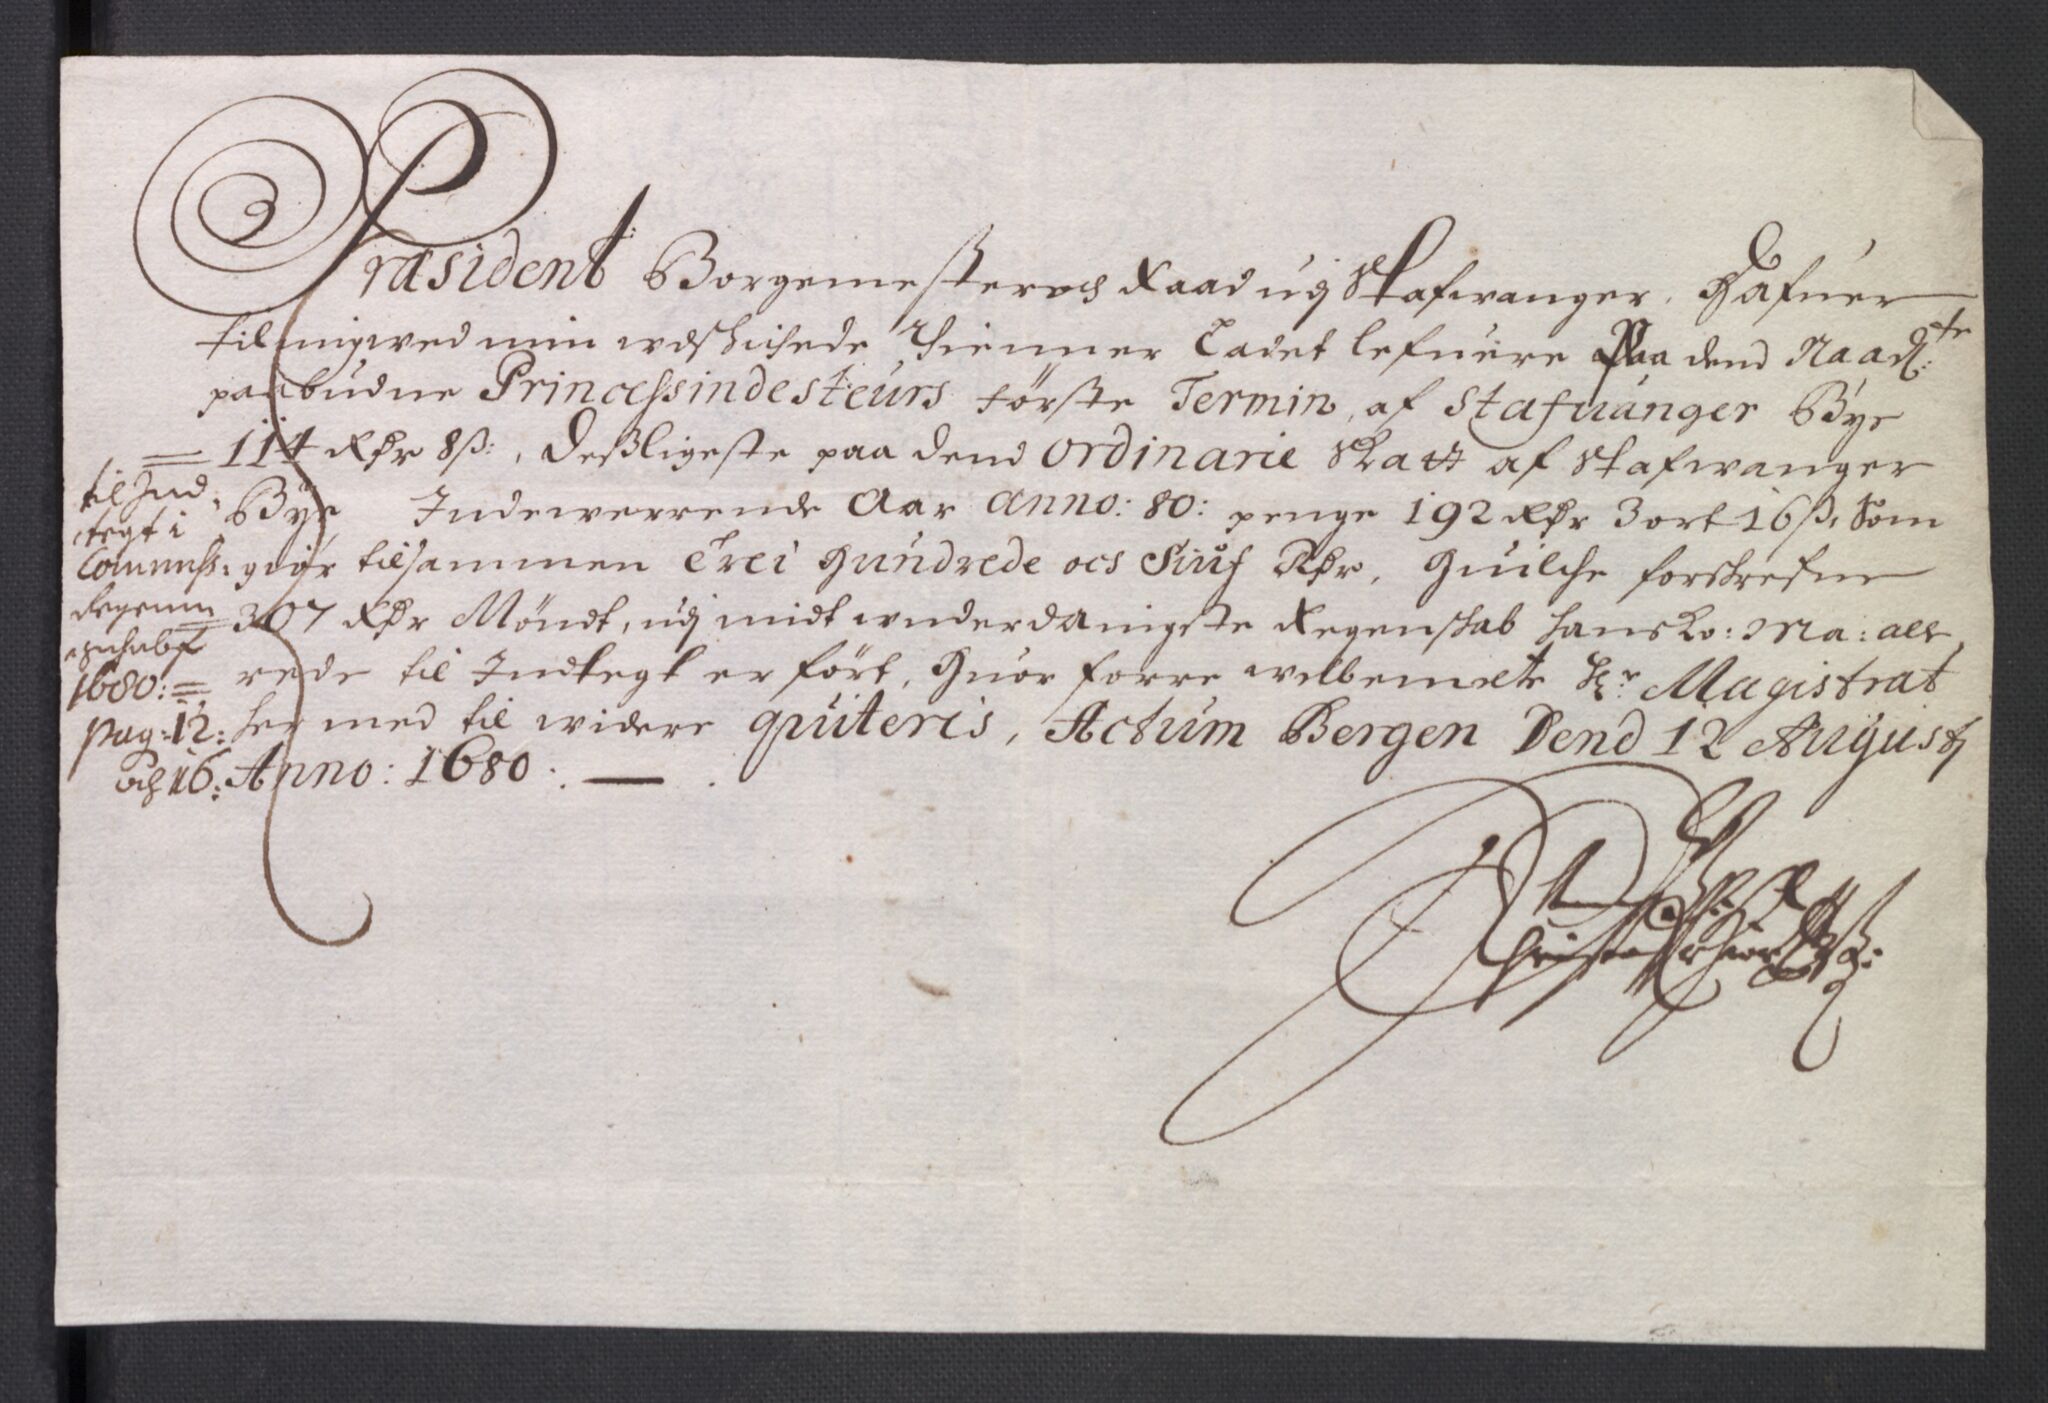 Præsident Borgemester och Raad udj Stafwanger, Hafuer
til mig ved min udschichede Thienner Ladet lefuere Paa dend Naadl:te
paabudne Princessindesteurs förste Termin, af Stafuanger Bÿe
114 Rdr 8ß:, Desligeste paa dend Ordinarie Skatt af Stafwanger
Bÿe Indewerrende Aar Anno: 80: penge 192 Rdr 3 ort 16ß, Som
giör tilsammen Trei Hundrede och Siuf Rdr, Huilche forschrefne
307 Rdr Möndt, udj midt underdanigste Regenschab hans Ko: Ma: alle
rede til Indtegt er fört, Huor forre welbemelte Hr Magistrat
her med til widere quiteris, Actum Bergen Dend 12 Augustj
Anno: 1680.
til Ind
tegt i
Commiss:
Regenn
schabet
1680:
pag: 12:
och 16: